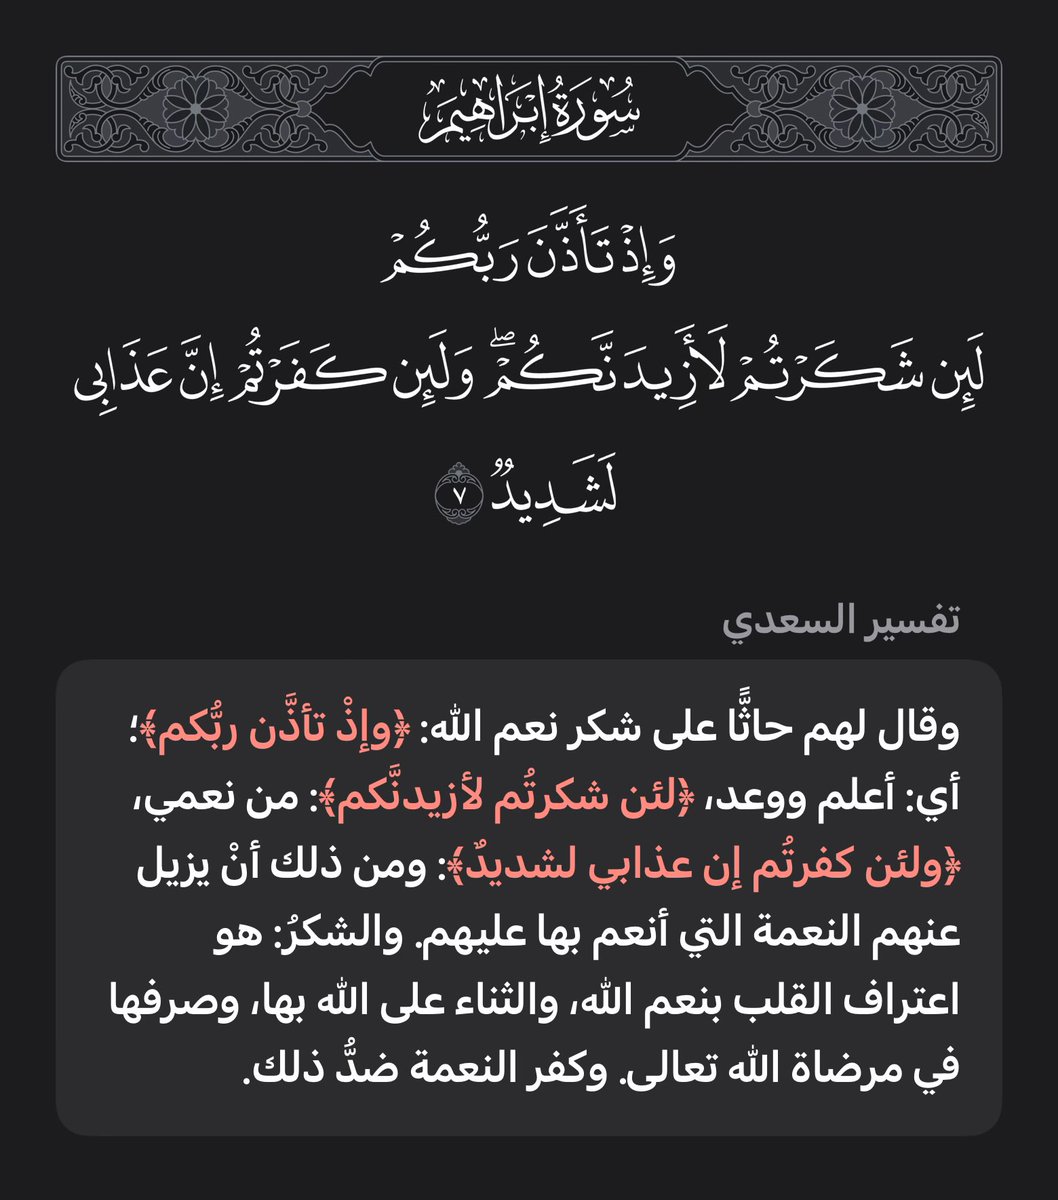 سُورَةُ إِبْرَاهِيمَ
وَإِذْ تَأَذَّنَ رَبُّكُمْ
لَئِن شَكَرْتُمْ لَأَزِيدَنَّكُمْۖ وَلَئِن كَفَرْتُمْ إِنَّ عَذَابِى
لَشَدِيدٌ ٧
تفسير السعدي
وقال لهم حاثًّا على شكر نعم الله: ﴿وإذْ تأذَّن ربُّكم﴾؛
أي: أعلم ووعد، ﴿لئن شكرتُم لأزيدنَّكم﴾: من نعمي،
﴿ولئن كفرتُم إن عذابي لشديدٌ﴾: ومن ذلك أنْ يزيل
عنهم النعمة التي أنعم بها عليهم. والشكرُ: هو
اعتراف القلب بنعم الله، والثناء على الله بها، وصرفها
في مرضاة الله تعالى. وكفر النعمة ضدُّ ذلك.